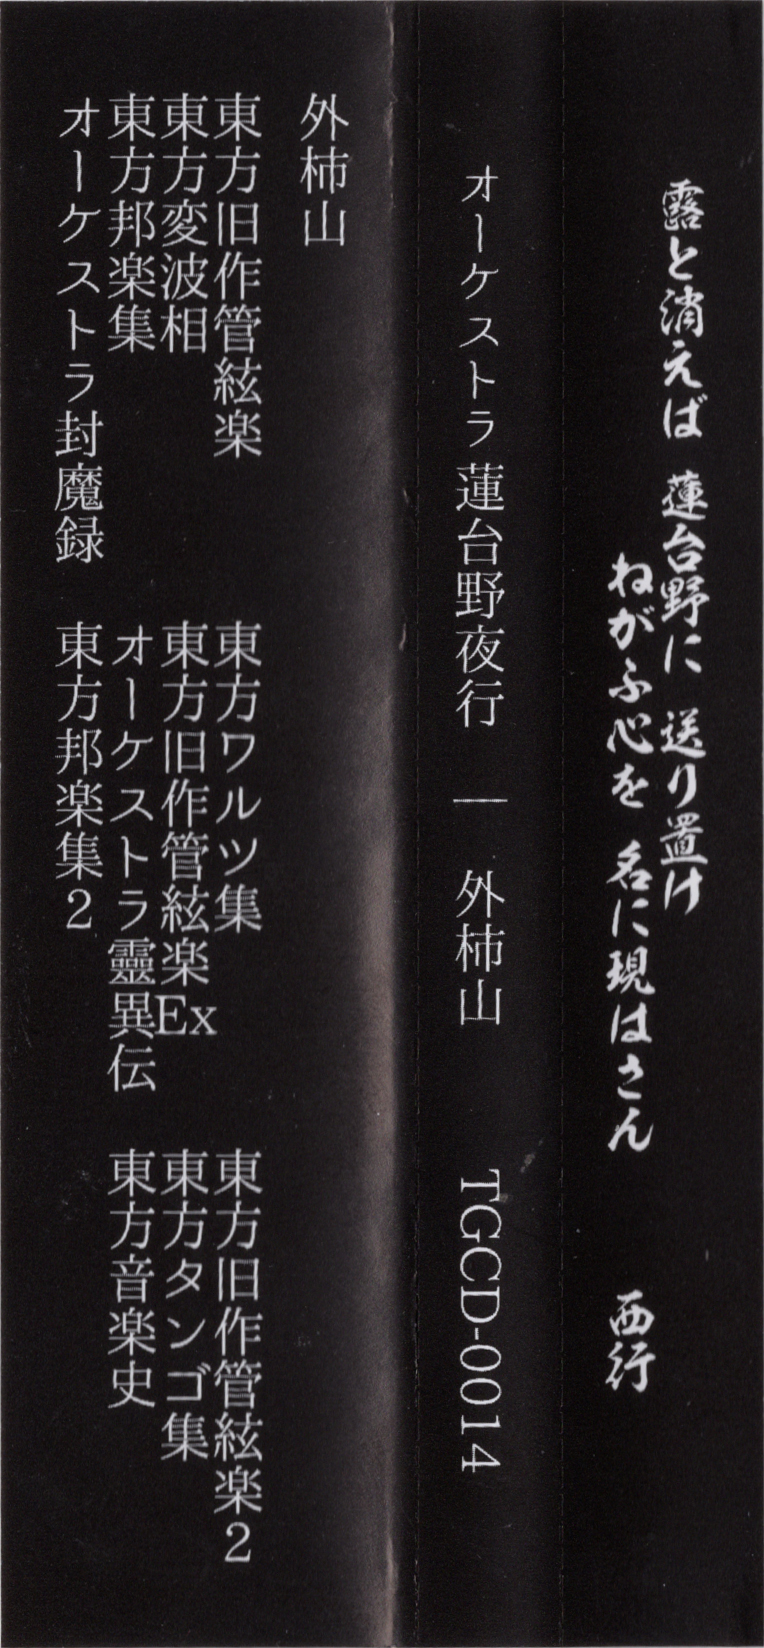 露と消えば 蓮台野に 送り置け
ねがふ心を 名に現はさん 西行
オーケストラ蓮台野夜行 ― 外柿山 TGCD-0014
外柿山
東方旧作管絃楽 東方ワルツ集 東方旧作管絃楽2
東方変波相 東方旧作管絃楽Ex 東方タンゴ集
東方邦楽集 オーケストラ靈異伝 東方音楽史
オーケストラ封魔録 東方邦楽集2